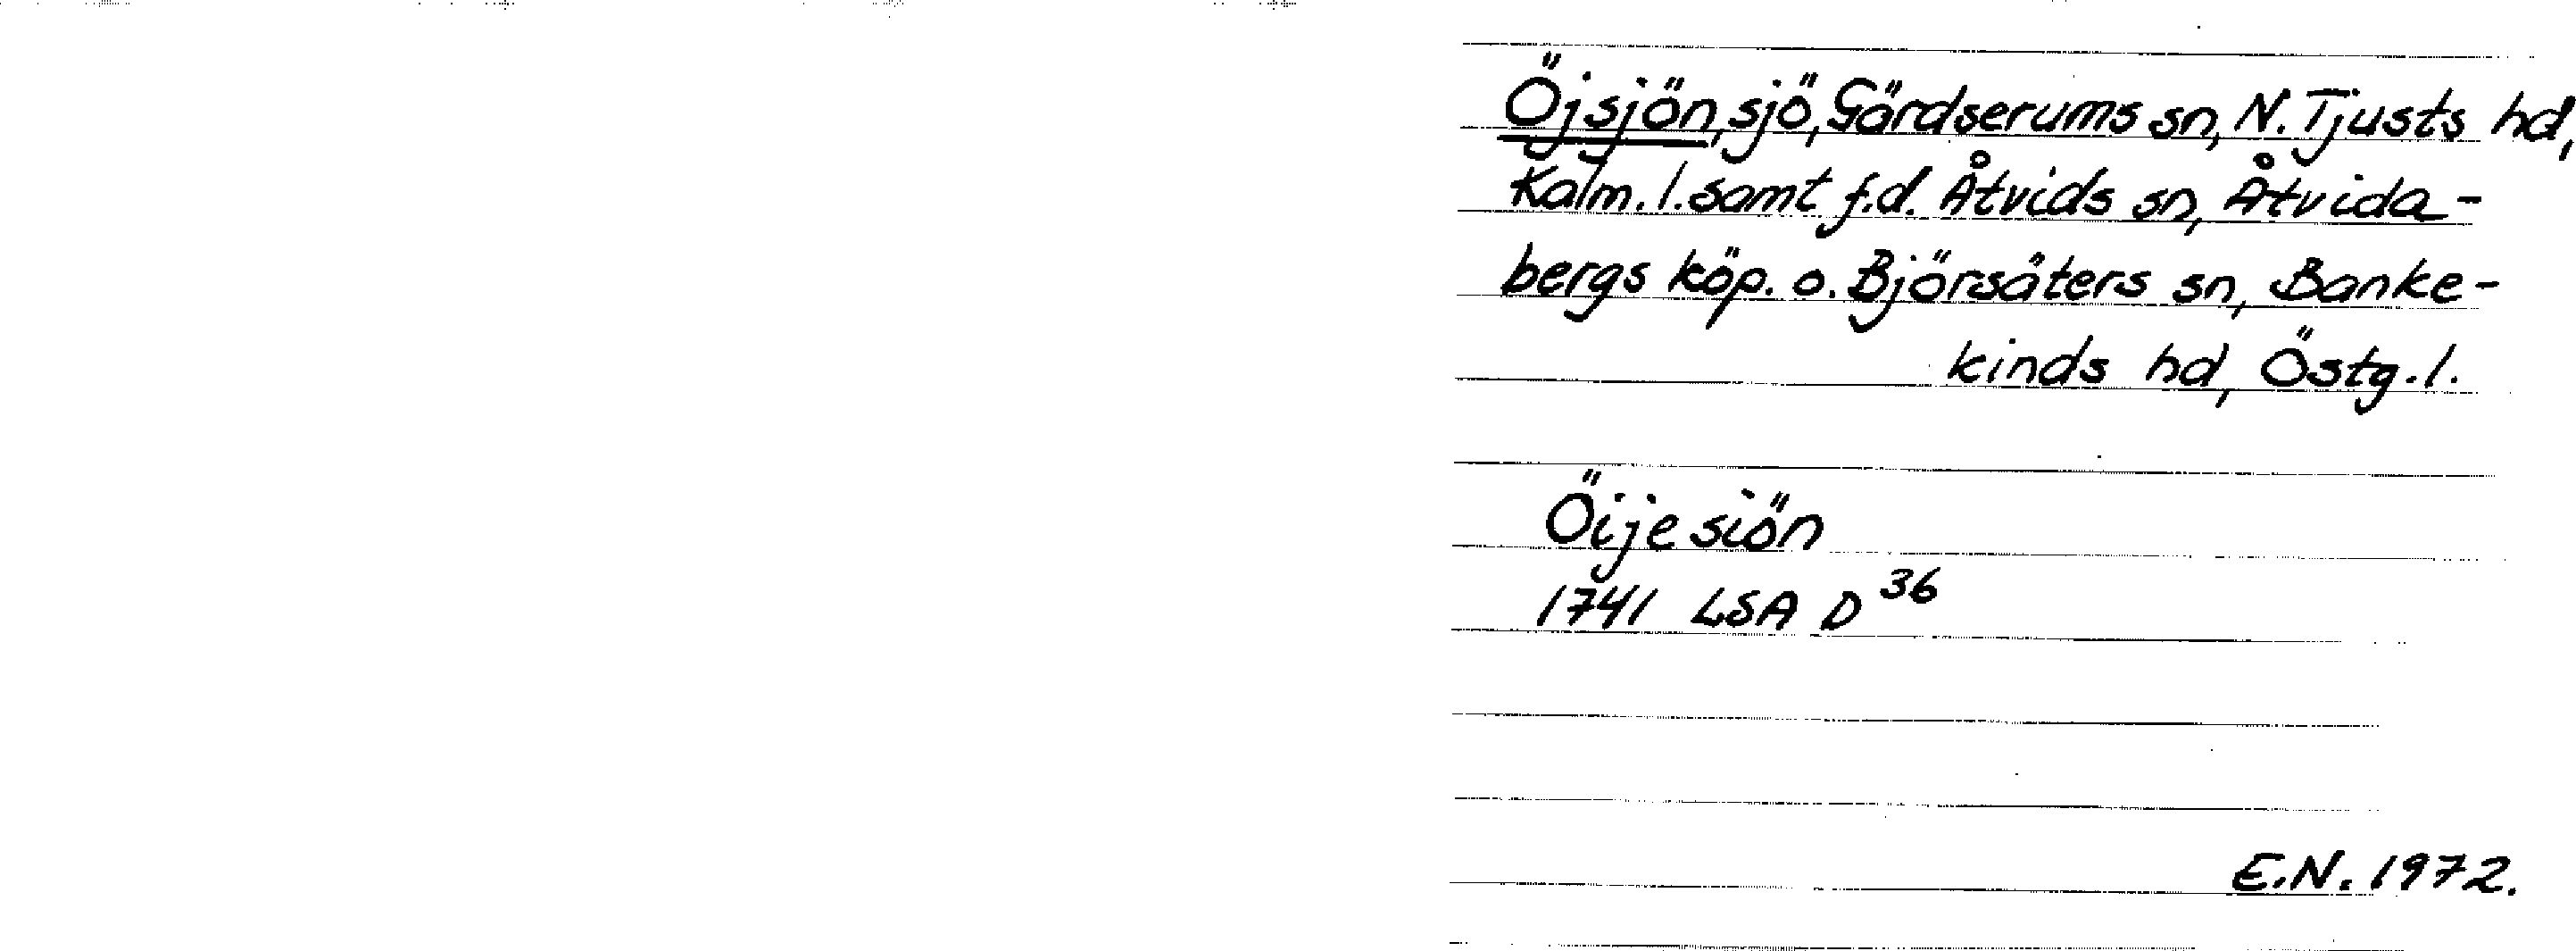 Öjsjön, sjö, Gärdserums sn, N. Tjusts hd,
Kalm. l. samt f.d. Åtvids sn, Åtvida-
bergs köp. o. Björsäters sn, Banke-
kinds hd, Östg. l.
Öijesiön
1741 LSA D 36
E.N. 1972.